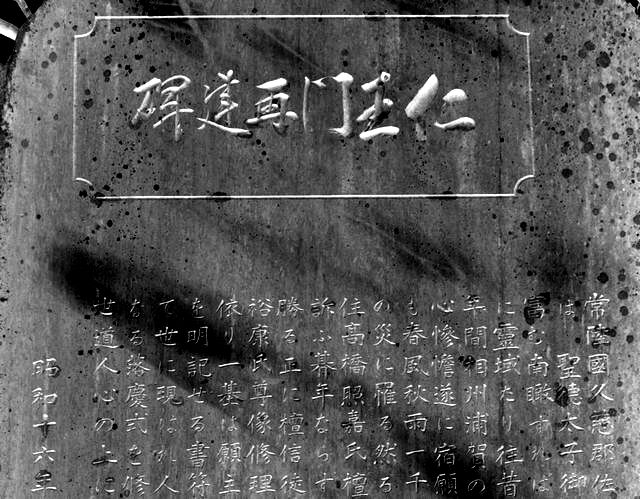 仁王門再建碑
常陸國久慈郡佐
は 聖德太子御
富む南瞰すれば
に靈域たり往昔
年間相州浦賀の
心慘憺遂に宿願
も春風秋雨一千
の災に罹る然る
住高橋照嘉氏檀
訴ふ暮年ならす
勝る正に檀信徒
裕康氏尊像修理
依り一基は願主
を明記せる書符
て世に現はれ人
なる落慶式を修
世道人心の上に
昭和十六年